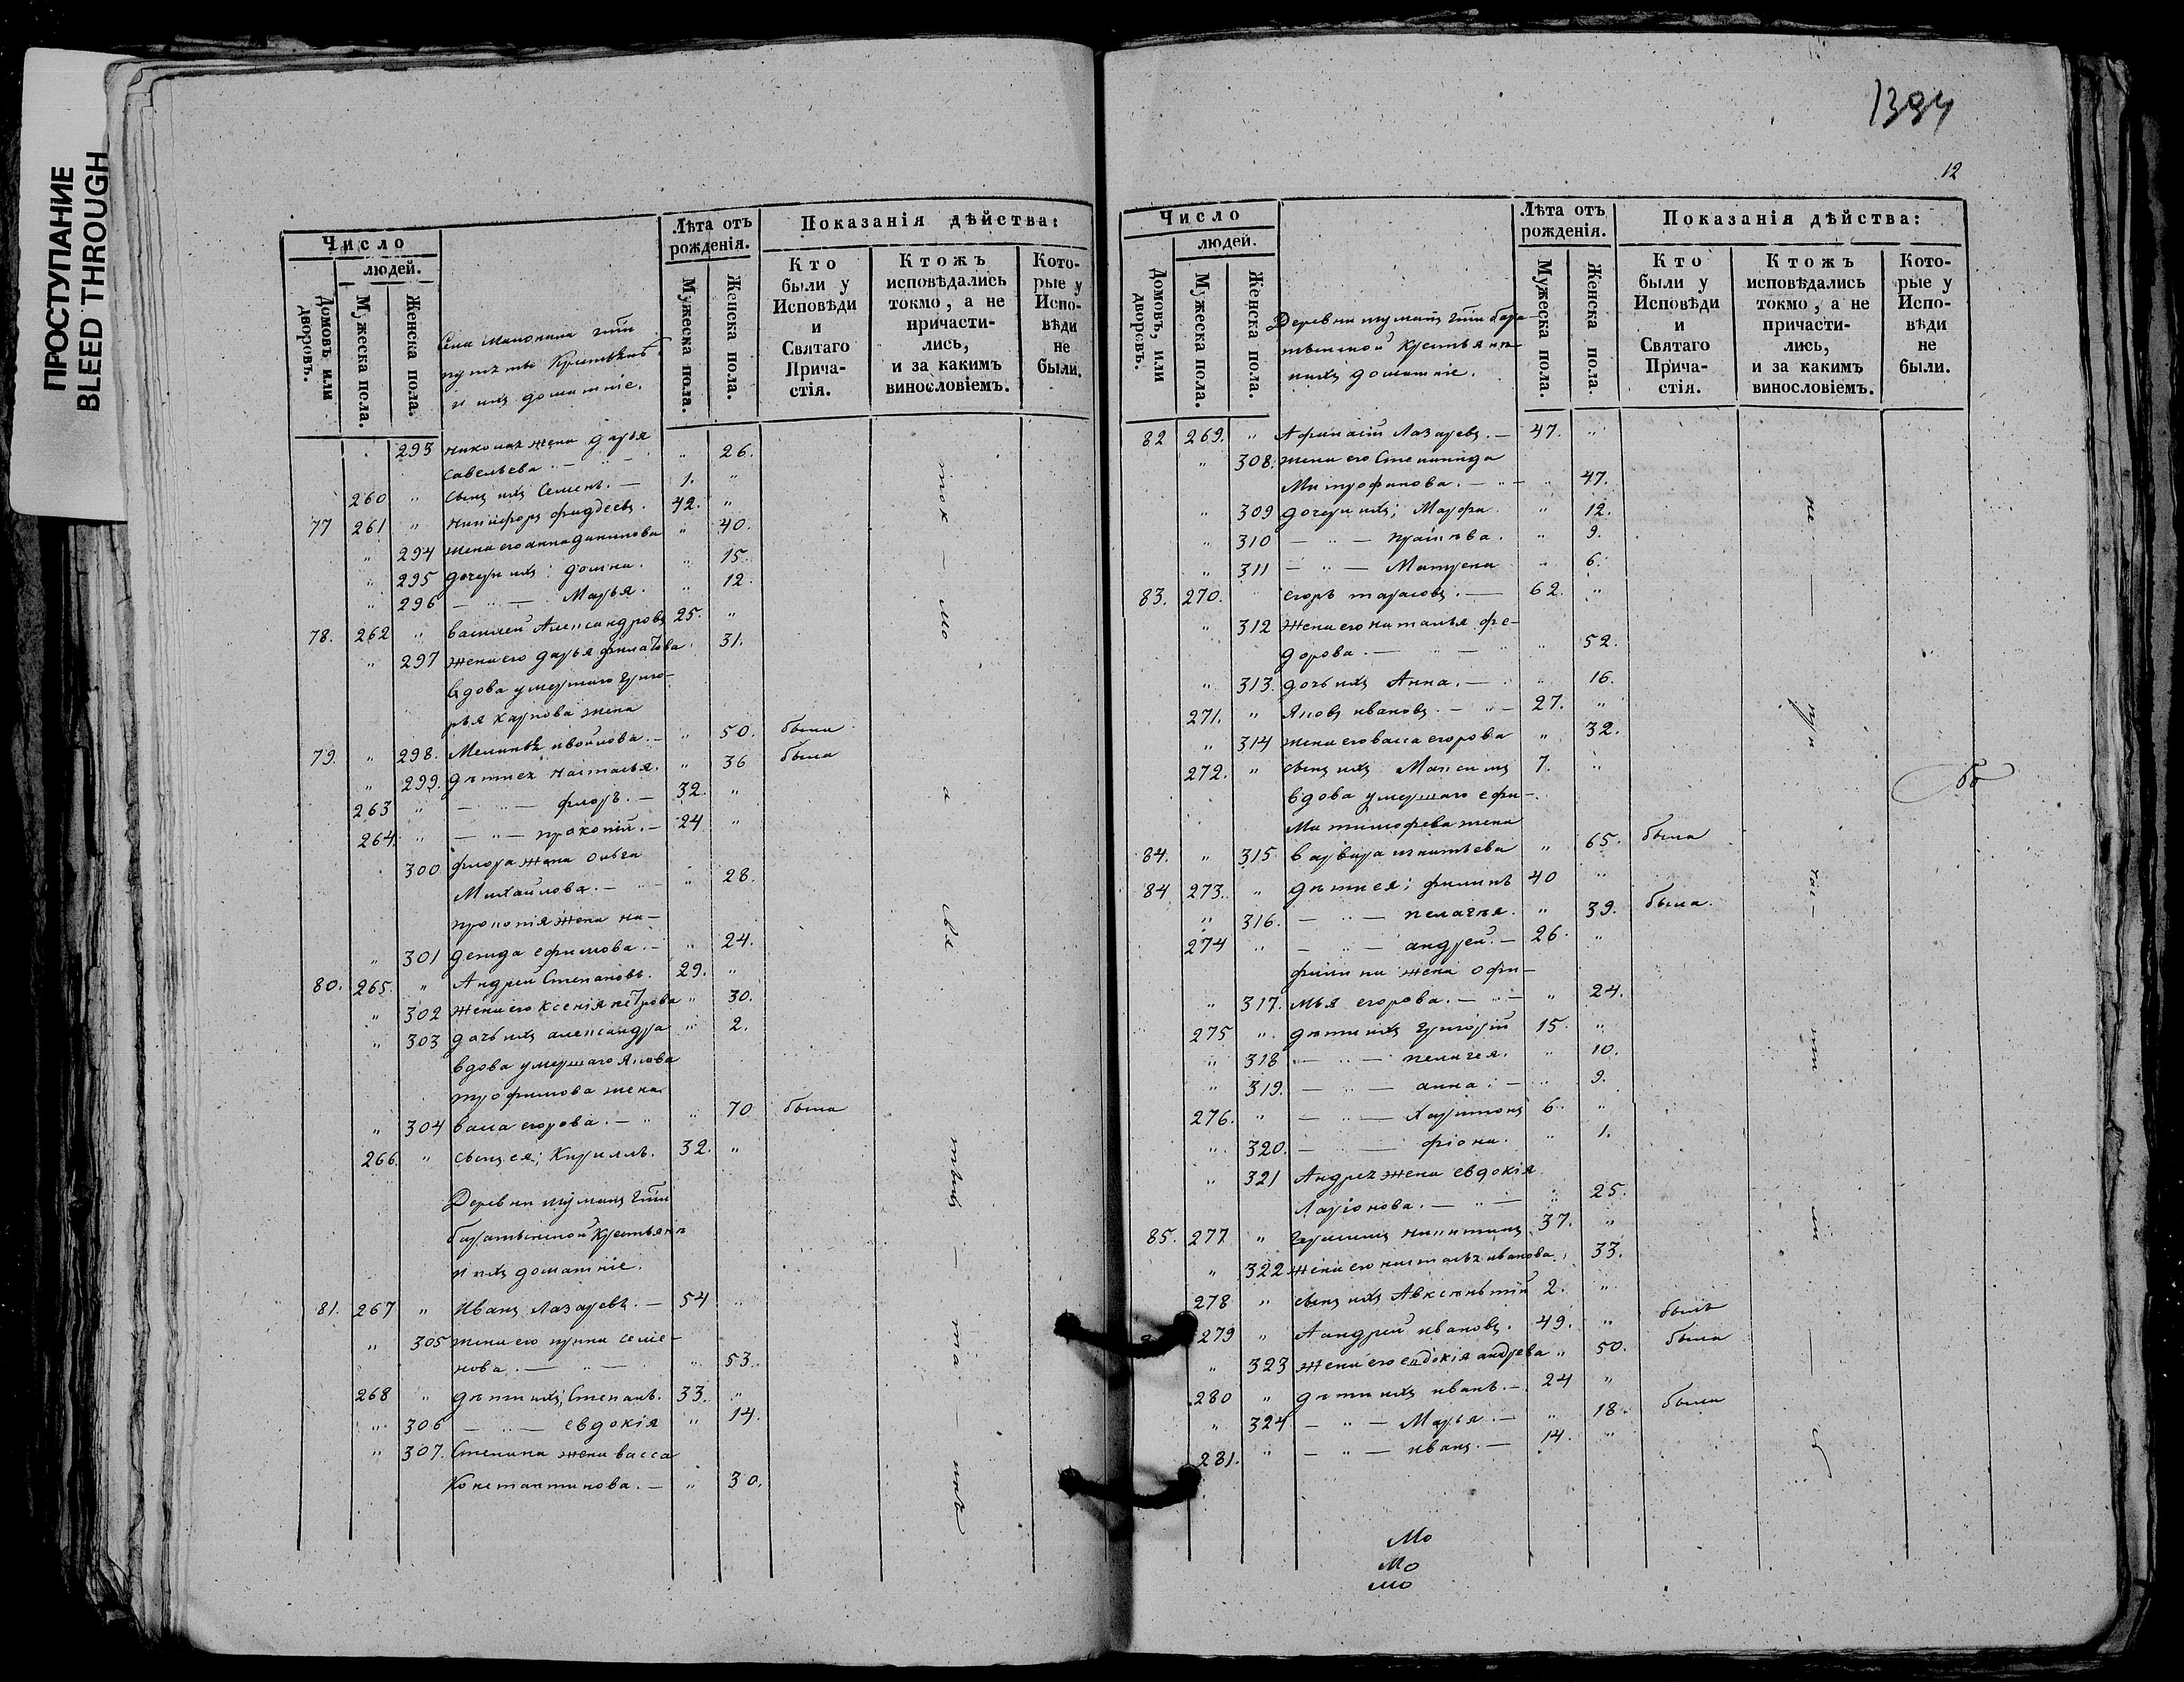 ПРОСТУПАНИЕ
BLEED THROUGH
Число
людей.
Домовъ или дворовъ.
Мужеска пола.
Женска пола.
Лѣта отъ рожденія.
Мужеска пола.
Женска пола.
Показанія дѣйства:
Кто были у Исповѣди и Святаго Прича-стія.
Ктожъ исповѣдались токмо, а не причасти-лись, и за какимъ винословіемъ.
Кото-рые у Испо-вѣди не были.
и ихъ домашніе.
293 жена Дарья
Савельева. — " 26.
260 " сынъ ихъ Семенъ. — 1. "
77 261 " Никифоръ Фадеевъ. 42. "
" 294 жена его Анна Данилова " 40.
" 295 дочери ихъ: Домна. " 15.
" 296 — " — Марья. " 12.
78. 262 " Василей Александровъ 25. "
" 297 жена его Дарья Филатова 31.
Вдова умершаго Григо-
рья Карпова жена
79. " 298. — " 50. была
" 299. Наталья. " 36 была
263 " — " — Флоръ. — 32. "
264. " — " — Прокопій. — 24 "
300 Флора жена Ольга
Михайлова. — " 28.
Прокопія жена На-
" 301 дежда Ефимова. — " 24.
80. 265 " Андрей Степановъ. 29. "
" 302 жена его Ксенія Петрова " 30.
" 303 дочь ихъ Александра " 2.
вдова умершаго Якова
Трофимова жена
" 304 васа Егорова. — " " 70 была
266. " сынъ ея; Кириллъ. 32. "
Деревни
крестьяне
и ихъ домашніе.
81. 267 " Иванъ Лазаревъ. — 54 "
" 305 жена его Ирина Семе-
нова. — " — " 53.
268 " дѣти ихъ; Степанъ. 33. "
" 306 — " — Евдокія " 14.
" 307. Степана жена васса
Константинова. — " 30.
ток — мо — а свя тыхъ — та — инъ
1394
12
Число
людей.
Домовъ, или дворовъ.
Мужеска пола.
Женска пола.
Лѣта отъ рожденія.
Мужеска пола.
Женска пола.
Показанія дѣйства:
Кто были у Исповѣди и Святаго Прича-стія.
Ктожъ исповѣдались токмо, а не причасти-лись, и за какимъ винословіемъ.
Кото-рые у Испо-вѣди не были.
Деревни
крестьяне
ихъ домашніе.
82 269. " Афанасій Лазаревъ. — 47. "
" 308. жена его Степанида
Митрофанова. — " — " 47.
" 309 дочери ихъ; Марфа. " 12.
" 310 — " — " 9.
" 311 — " — Матрена " 6.
83. 270. Егоръ Тарасовъ. — 62. "
" 312 жена его Наталья Фе-
дорова. — " — " 52.
" 313. дочь ихъ Анна. — " 16.
271. " Яковъ Ивановъ. — " — 27. "
" 314 жена его васса Егорова " 32.
272. " сынъ ихъ Максимъ 7. "
вдова умершаго Ефи-
ма Тимофева жена
84. " 315 варвара Игнатьева " 65. была
84 273. " дѣти ея; Филипъ 40 "
" 316. — " — Пелагѣя. " 39. была.
274 " — " — Андрей. — 26. "
Филипа жена Офи-
" 317. мья Егорова. — " — " 24.
275 " дѣти ихъ Григорій 15. "
" 318 — " — Пелагея. " 10.
" 319. — " — Анна. — " 9.
276. " — " — Харитонъ 6. "
" 320. — — Фіона. " 1.
" 321 Андрея жена Евдокія
Ларіонова. — " — " 25.
85. 277 " Никитинъ 37. "
" 322 жена его Наталья Иванова. 33.
278 " сынъ ихъ Авксентій 2. "
279 " Аандрей Ивановъ. 49. " былъ
" 323 жена его Евдокія Андрева " 50. была
280 " дѣти ихъ Иванъ. — 24 "
" 324 — " — Марья. — " 18. была
281. " — " — Иванъ. — 14. "
не — при — час — ти — ли — съ
Мо
Мо
мо